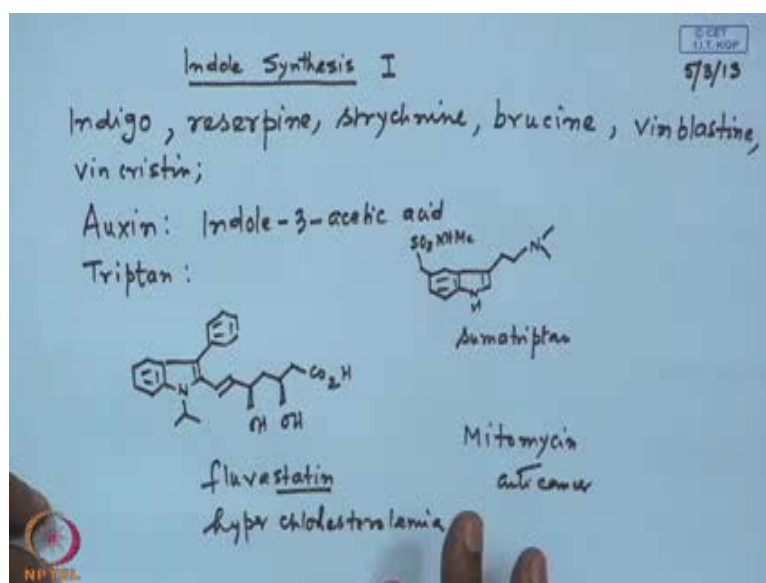 Indole Synthesis I
© CET
I.I.T. KGP
5/3/13
Indigo, reserpine, strychnine, brucine, vinblastine,
vincristin;
Auxin: Indole-3-acetic acid
Triptan:
SO2NHMe
N
N
H
sumatriptan
N
CO2H
OH OH
fluvastatin
hyper chlolesterolamia
Mitomycin
anti cancer
NPTEL